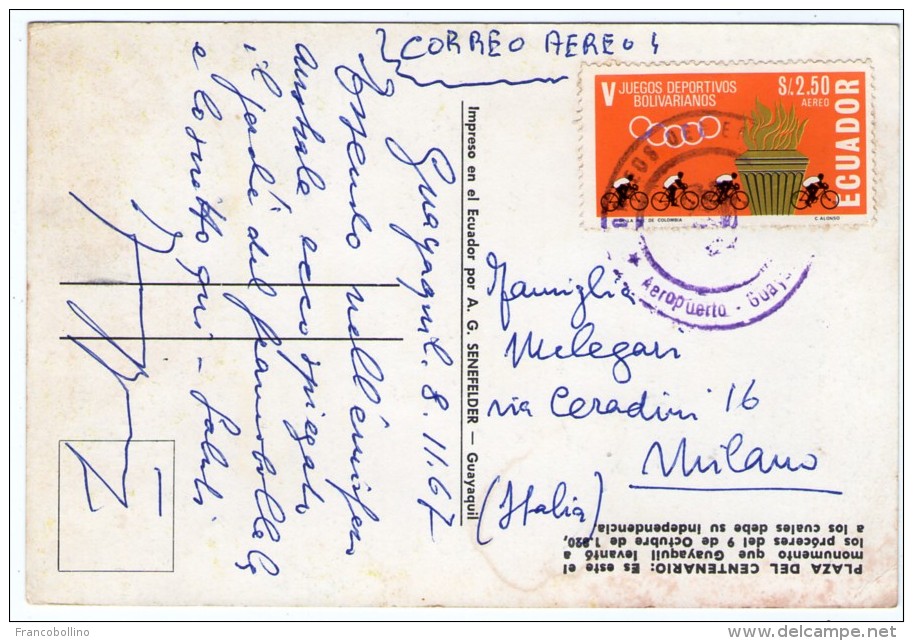 CORREO AEREO
V JUEGOS DEPORTIVOS
BOLIVARIANOS
S/. 2.50
AEREO
ECUADOR
DE COLOMBIA
C. ALONSO
Aeropuerto - Guaya
Guayaquil. 8.11.67
Essendo nell'emisfero
australe ecco spiegato
il perché del francobollo
e lo scritto qui - Saluti
Impreso en el Ecuador por A. G. SENEFELDER — Guayaquil
Famiglia
Melegari
via Ceradini 16
Milano
(Italia)
PLAZA DEL CENTENARIO: Es este el
monumento que Guayaquil levantó a
los próceres del 9 de Octubre de 1.820,
a los cuales debe su independencia.
Francobollino
delcampe.net